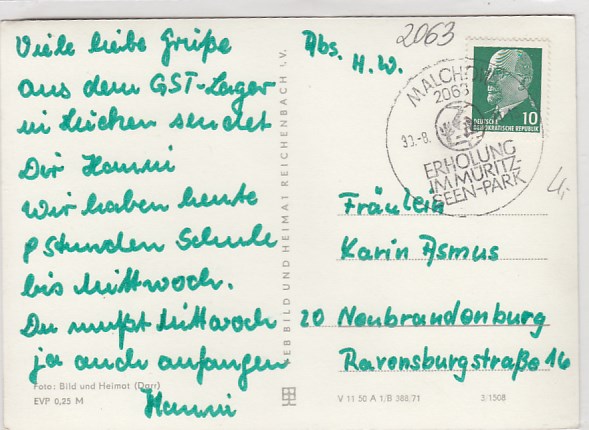 Viele liebe Grüße
aus dem GST-Lager
in Lücken sendet
Dir Hanni
Wir haben heute
8 Stunden Schule
bis Mittwoch.
Du mußt Mittwoch
ja auch anfangen
Hanni
Foto: Bild und Heimat (Darr)
EVP 0,25 M
VEB BILD UND HEIMAT REICHENBACH I. V.
Abs.
H. W.
2063
MALCHOW
2063
30.-8.
ERHOLUNG
IM MÜRITZ-
SEEN-PARK
10
DEUTSCHE
DEMOKRATISCHE REPUBLIK
4,-
Fräulein
Karin Asmus
20 Neubrandenburg
Ravensburgstraße 16
V 11 50 A 1/B 388/71
3/1508